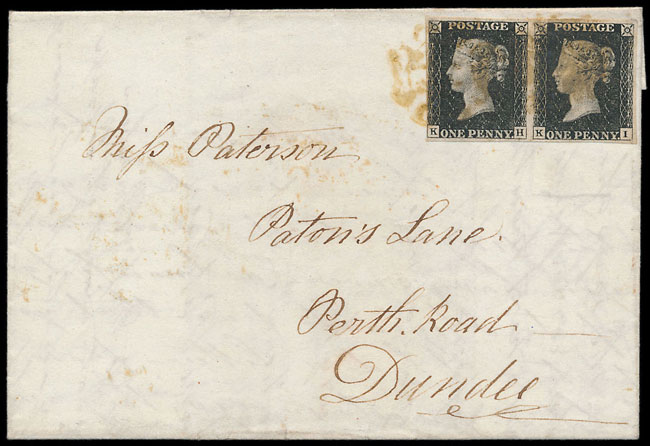 POSTAGE POSTAGE
K ONE PENNY H K ONE PENNY I
Miſs Paterson
Paton's Lane.
Perth. Road
Dundee